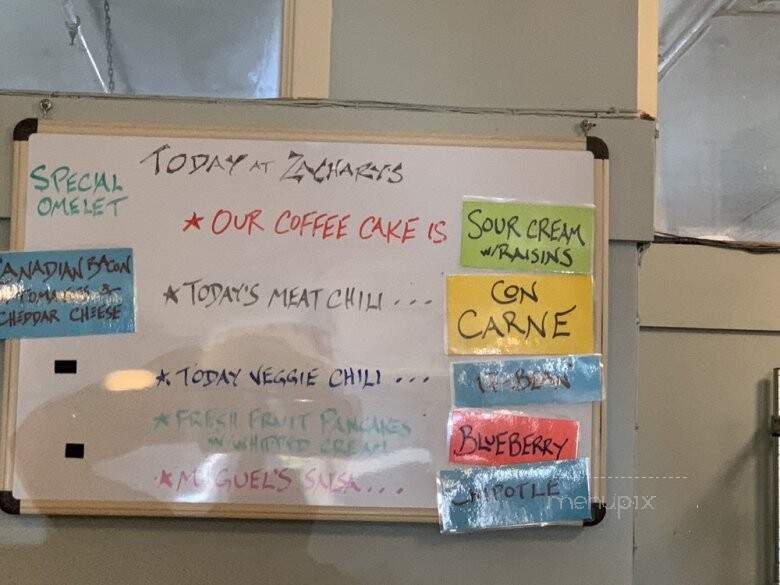 TODAY AT ZACHARY'S
SPECIAL
OMELET
CANADIAN BACON
TOMATOES &
CHEDDAR CHEESE
★ OUR COFFEE CAKE IS
SOUR CREAM
W/RAISINS
★ TODAY'S MEAT CHILI ...
CON
CARNE
★ TODAY VEGGIE CHILI ...
17-BEAN
★ FRESH FRUIT PANCAKES
W/WHIPPED CREAM
BLUEBERRY
★ MIGUEL'S SALSA...
CHIPOTLE
menupix